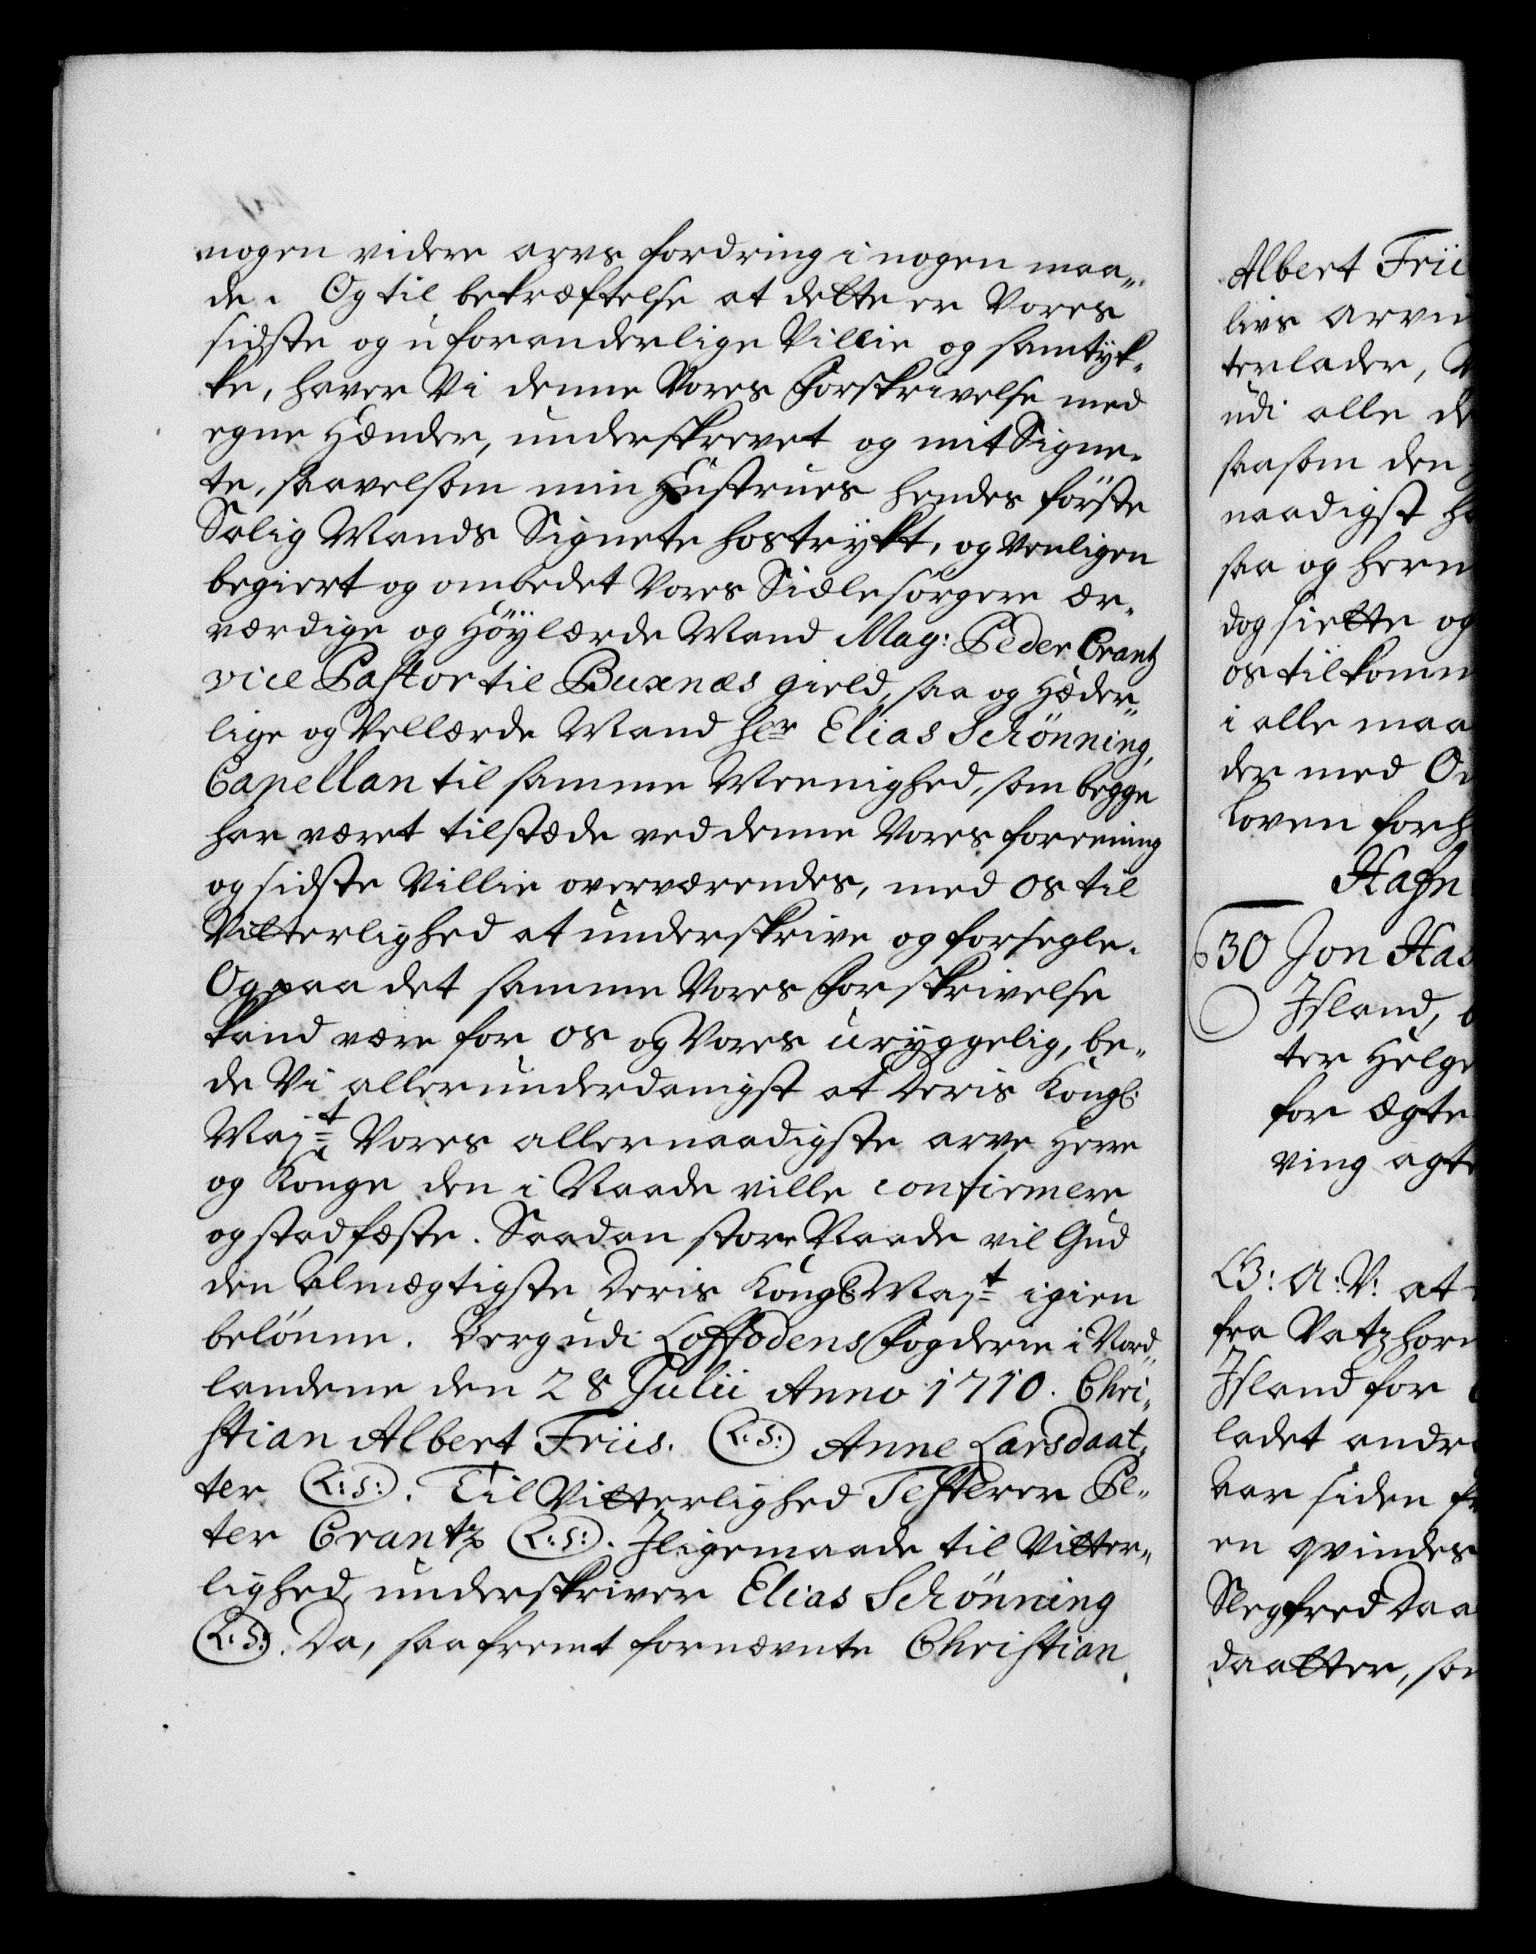 nogen videre arvs fordring i nogen maa„
de. Og til bekræftelse at dette er Vores
sidste og uforanderlige Villie og samtyk„
ke, haver Vi denne Vores Forskrivelse med
egne Hænder, underskrevet og mit Signe„
te, saavelsom min Hustrues hendes første
Salig Mands Signete hostrykt, og venligen
begiert og ombedet Vores Siælesørgere ær„
værdige og Høylærde Mand Mag: Peder Crantz
vice Pastor til Buxnæs gield, saa og Hæder„
lige og Vellærde Mand hr Elias Schønning,
Capellan til samme Meenighed, som begge
har været tilstæde ved denne Vores foreening
og sidste Villie overværendes, med os til
Vitterlighed at underskrive og forsegle.
Og paa det samme Vores Forskrivelse
kand være for os og Vores uryggelig, be„
de Vi allerunderdanigst at Deris Kongl:
Majt Vores allernaadigste arve Herre
og Konge den i Naade ville confirmere
og stadfæste. Saadan store Naade vil Gud
den Almægtigste Deris Kongl Majt igien
belønne. Berg udi Loffodens Fogderie i Nord„
landene den 28 Julii Anno 1710. Chri„
stian Albert Friis. L.S: Anne Larsdaat„
ter L:S:. Til Vitterlighed Testerer Pe„
ter Crantz L:S:. Iligemaade til Vitter„
lighed, underskriver Elias Schønning
L:S:. Da, saafremt fornævnte Christian
Albert Frii
livs arvi
terlader, V
udi alle de
saasom den
naadigst ha
saa og hern
dog siette og
os tilkomm
i alle maa
der med O
Loven forh
Hafn
630 Jon Has
Island, b
ter Helge
for Ægte
ving agte
G: A: V: at
fra Vatzhorn
Island for
ladet andr
var siden fr
en qvindes
Slegfred Daa
daatter, som